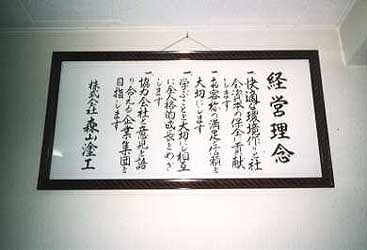 経営理念
一、快適な環境作りと社
会資本の保全に貢献
します
一、お客様の満足と信頼を
大切にします
一、学ぶことを大切にし相互
に全人格的成長をめざ
します
一、協力会社と意見を語
り合える企業集団を
目指します
株式会社 森山塗工